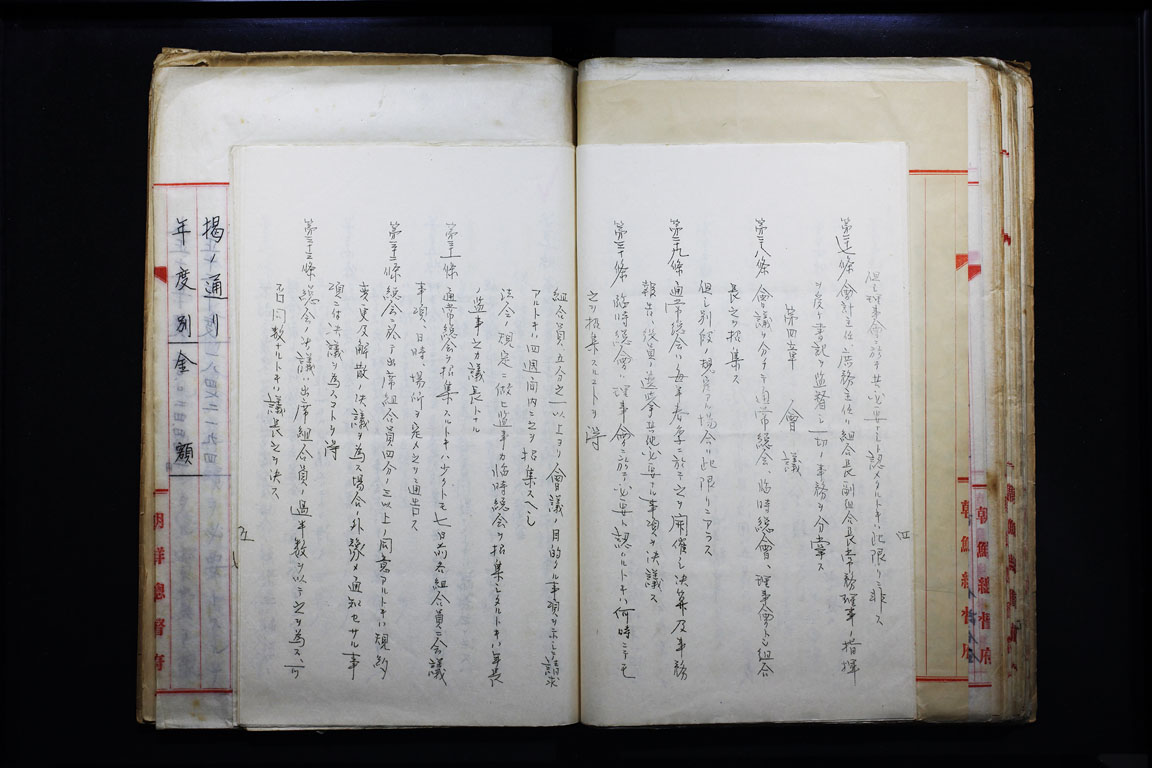 但シ理事會ニ於テ其必要ナシト認メタルトキハ此限リニ非ス
第二十七條 會計主任庶務主任ハ組合長副組合長常務理事ノ指揮
ヲ受ケ書記ヲ監督シ一切ノ事務ヲ分掌ス
第四章 會議
第二十八條 會議ヲ分チテ通常總会、臨時總會、理事會トシ組合
長之ヲ招集ス
但シ別段ノ規定アル場合ハ此限リニアラス
第二十九條 通常總会ハ毎年春季ニ於テ之ヲ開催シ決算及事務
報告、役員ノ選挙其他必要ナル事項ヲ決議ス
第三十條 臨時總會ハ理事會ニ於テ必要ト認ムルトキハ何時ニテモ
之ヲ招集スルコトヲ得
四
組合員五分之一以上ヨリ會議ノ目的タル事項ヲ示シ請求
アルトキハ四週間内ニ之ヲ招集スヘシ
法令ノ規定ニ依ヒ監事カ臨時総会ヲ招集シタルトキハ年長
ノ監事之カ議長トル
第三十一條 通常総会ヲ招集スルトキハ少クトモ七日前各組合員ニ会議
事項、日時、場所ヲ定メ之ヲ通告ス
第三十二條 総会ニ於テ出席組合員四分ノ三以上ノ同意アルトキハ規約
変更及解散ノ決議ヲ為ス場合ノ外豫メ通知セサル事
項ニ付決議ヲ為スコトヲ得
第三十三條 總会ノ決議ハ出席組合員ノ過半数ヲ以テ之ヲ為ス、可
否同数ナルトキハ議長之ヲ決ス
五
掲ノ通リ
年度別金額
朝鮮總督府
朝鮮總督府
朝鮮總督府